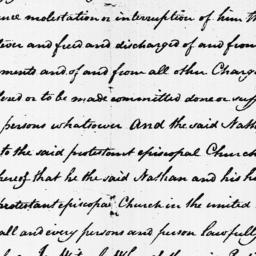 molestation or interruption of him th
and freed and discharged of and from
ments and of and from all other Charg
or to be made committed done or suff
persons whatsoever And the said Nath
to the said protestant episcopal Church
hereof that he the said Nathan and his h
protestant episcopal Church in the united
all and every persons and person lawfully